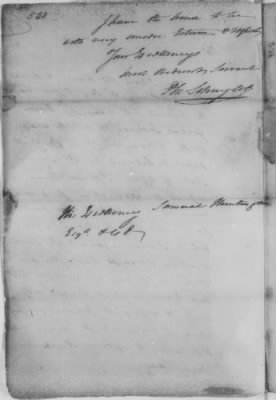 520
I have the honor to be
with very sincere Esteem & respect
Your Excellencys
most obedient Servant
Ph: Schuyler
His Excellency Samuel Huntington
Esqr &c &c